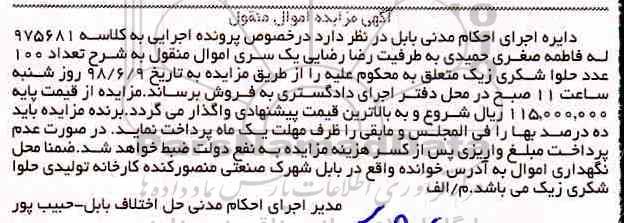 آگهی مزایده اموال منقول
دایره اجرای احکام مدنی بابل در نظر دارد درخصوص پرونده اجرایی به کلاسه ۹۷۵۶۸۱
له فاطمه صغری حمیدی به طرفیت رضا رضایی یک سری اموال منقول به شرح تعداد ۱۰۰
عدد حلوا شکری زیک متعلق به محکوم علیه را از طریق مزایده به تاریخ ۹۸/۶/۹ روز شنبه
ساعت ۱۱ صبح در محل دفتر اجرای دادگستری به فروش برساند.مزایده از قیمت پایه
۱۱۵,۰۰۰,۰۰۰ ریال شروع و به بالاترین قیمت پیشنهادی واگذار می گردد.برنده مزایده باید
ده درصد بها را فی المجلس و مابقی را ظرف مهلت یک ماه پرداخت نماید. در صورت عدم
پرداخت مبلغ واریزی پس از کسر هزینه مزایده به نفع دولت ضبط خواهد شد.ضمنا محل
نگهداری اموال به آدرس خوانده واقع در بابل شهرک صنعتی منصورکنده کارخانه تولیدی حلوا
شکری زیک می باشد.م/الف
مدیر اجرای احکام مدنی حل اختلاف بابل-حبیب پور